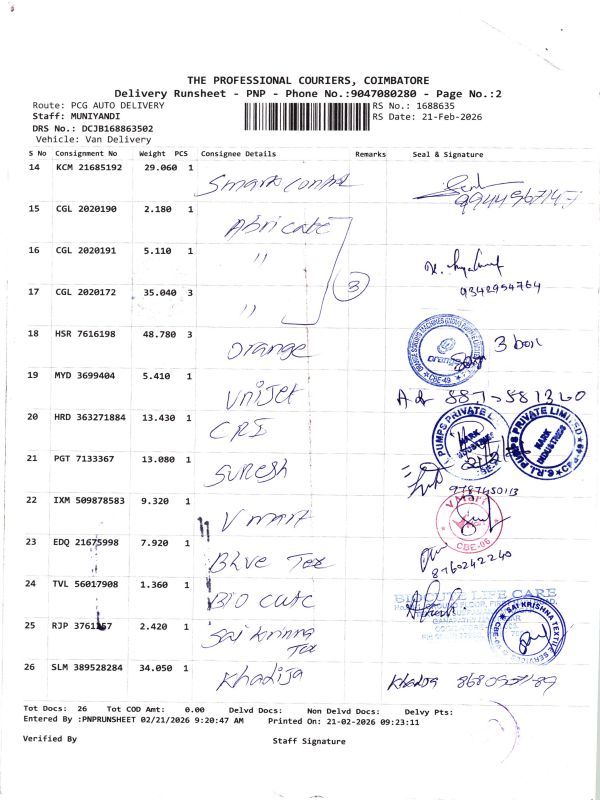 THE PROFESSIONAL COURIERS, COIMBATORE
Delivery Runsheet - PNP - Phone No.:9047080280 - Page No.:2
Route: PCG AUTO DELIVERY RS No.: 1688635
Staff: MUNIYANDI RS Date: 21-Feb-2026
DRS No.: DCJB168863502
Vehicle: Van Delivery
S No Consignment No Weight PCS Consignee Details Remarks Seal & Signature
14 KCM 21685192 29.060 1
Smark
15 CGL 2020190 2.180 1
Abricate
16 CGL 2020191 5.110 1
"
9342954764
17 CGL 2020172 35.040 3
" 3
18 HSR 7616198 48.780 3
Orange 3 box
CBE-49
19 MYD 3699404 5.410 1
Unijet
20 HRD 363271884 13.430 1
CRI
PUMPS PRIVATE
MARK INDUSTRIES
S.R.I. PUMPS PRIVATE LIMITED
MARK INDUSTRIES
CBE-49
21 PGT 7133367 13.080 1
Suresh
22 IXM 509878583 9.320 1
V mart
V Mart
CBE-06
23 EDQ 21675998 7.920 1
Blue Tex
8760242240
24 TVL 56017908 1.360 1
Bio cute
BIOCUTE LIFE CARE
25 RJP 2.420 1
Sai krinna Tex
SAI KRISHNA TEXTILE SERVICES
26 SLM 389528284 34.050 1
Khadija Khadija
Tot Docs: 26 Tot COD Amt: 0.00 Delvd Docs: Non Delvd Docs: Delvy Pts:
Entered By :PNPRUNSHEET 02/21/2026 9:20:47 AM Printed On: 21-02-2026 09:23:11
Verified By Staff Signature